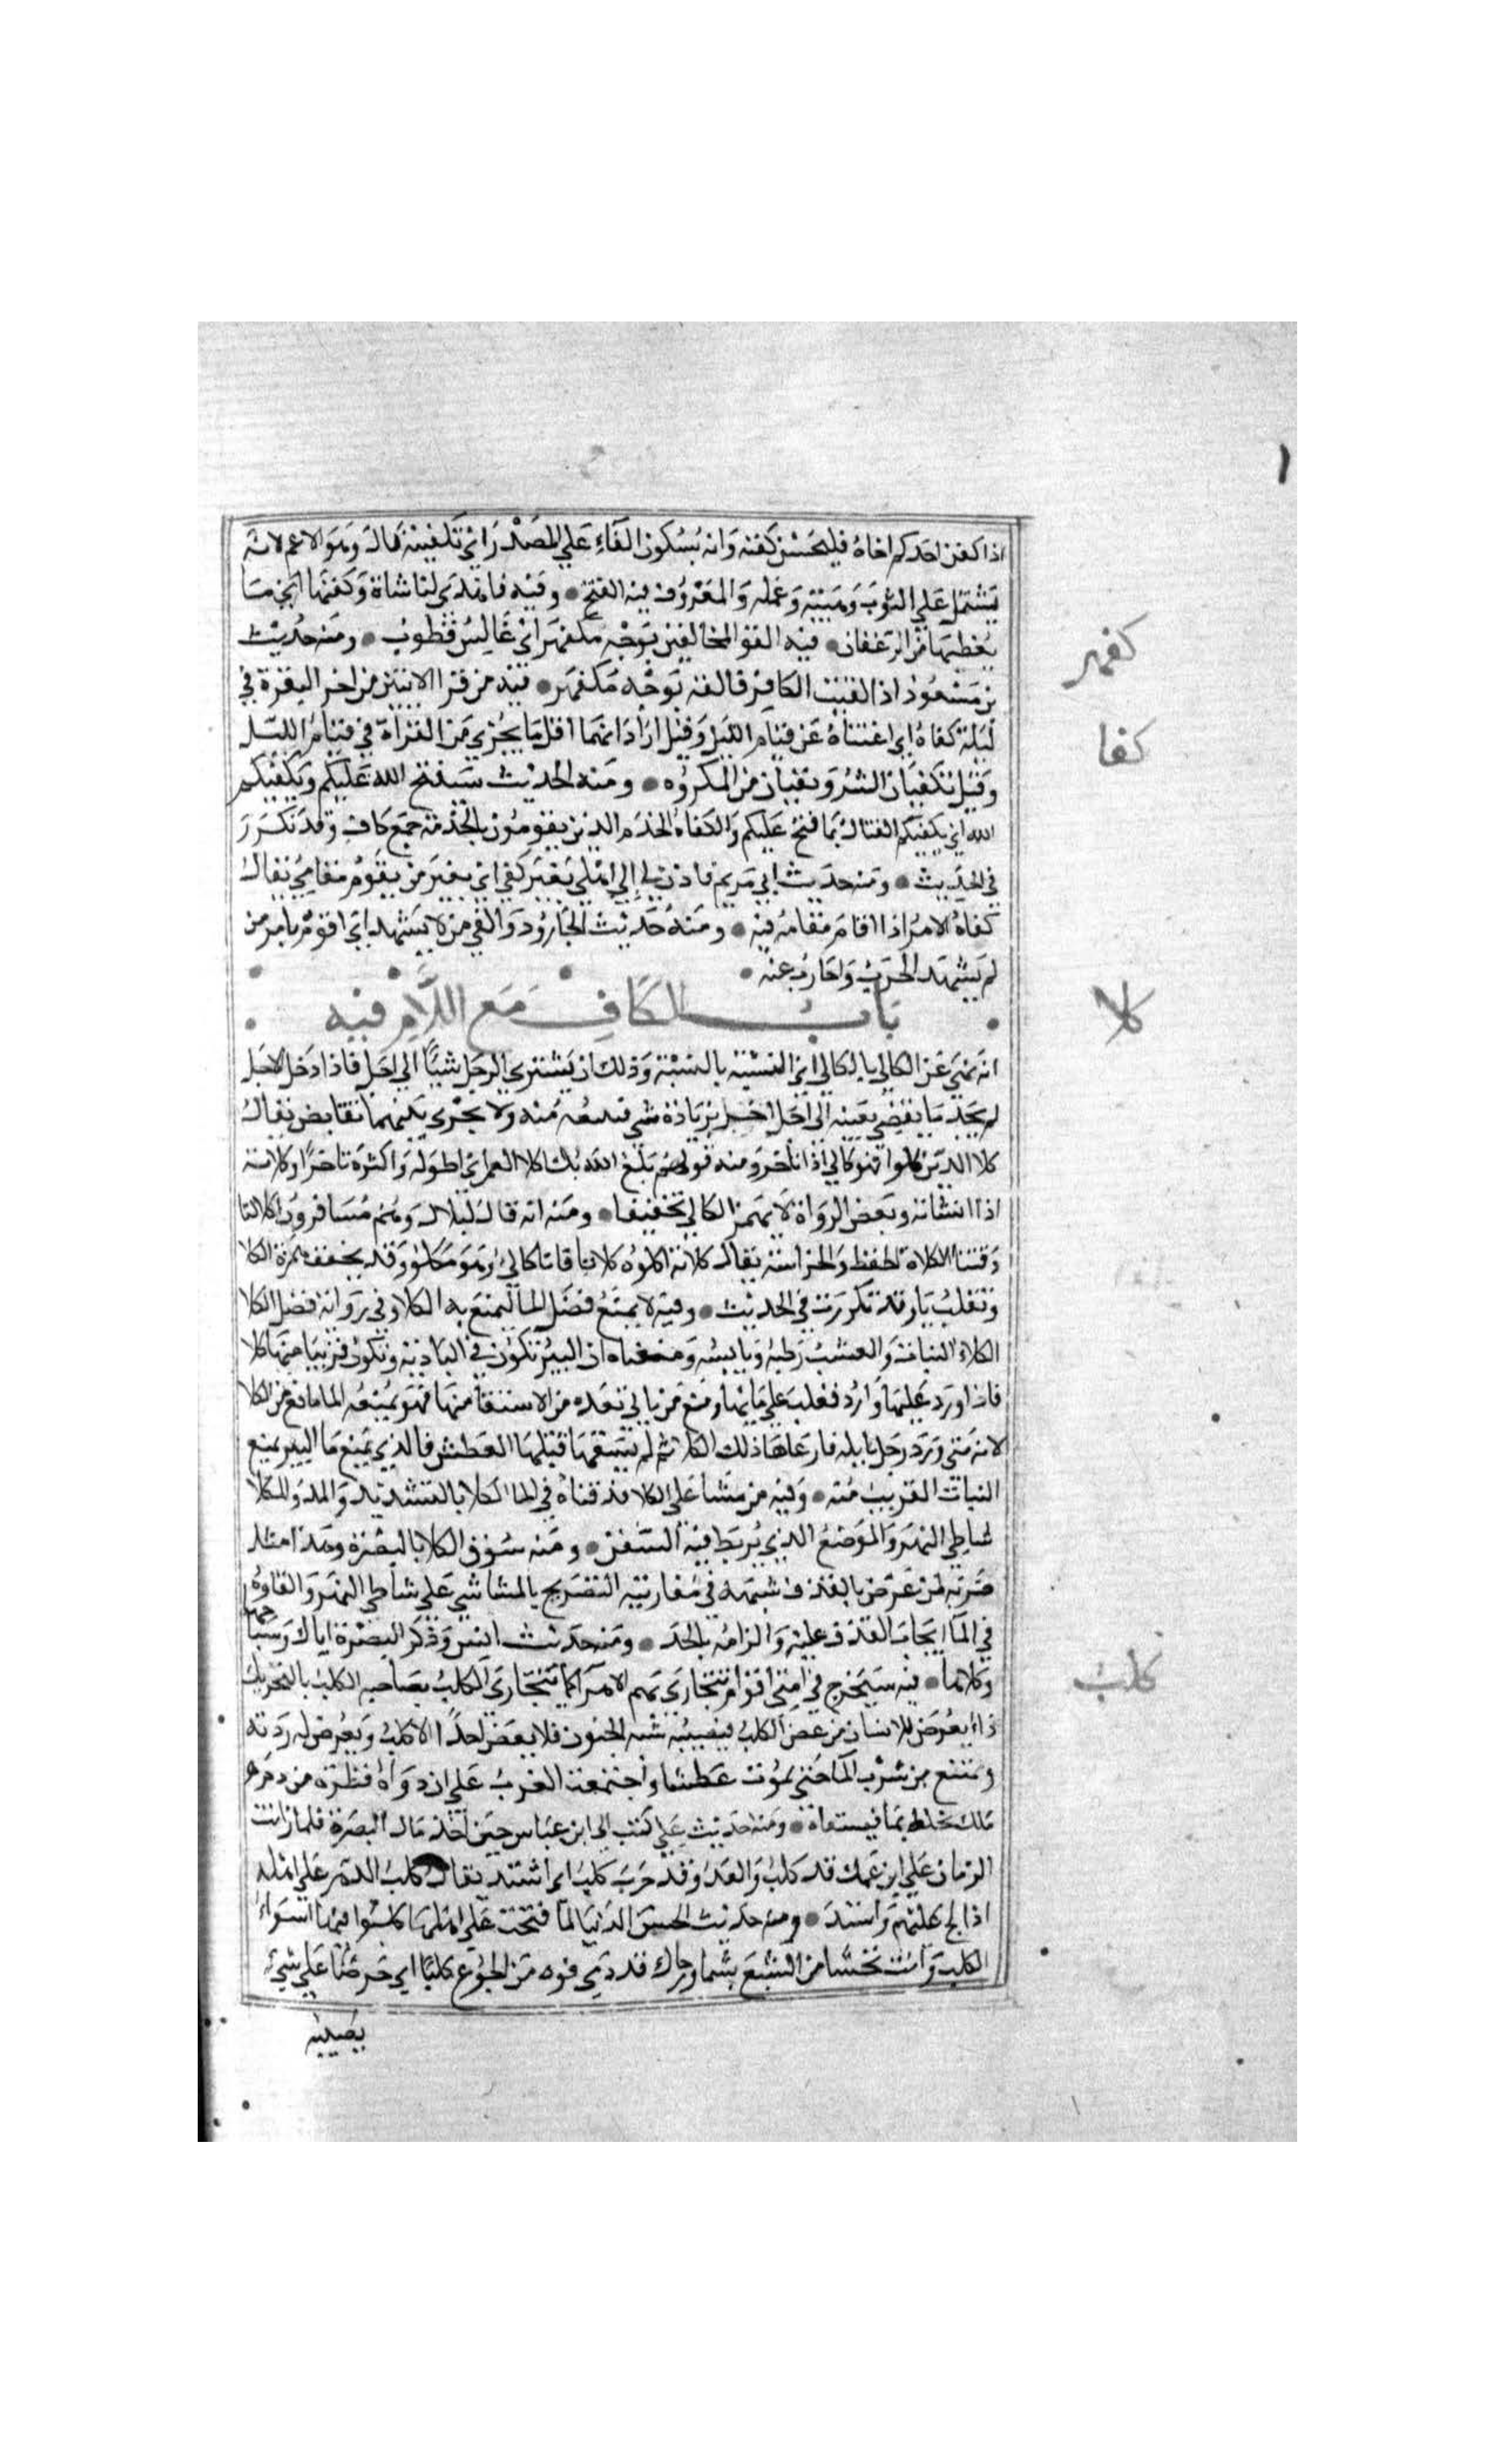 اذا كفن احدكم اخاه فليحسن كفنه وانه بسكون الفاء على المصدر اي تكفينه قال وهو الاعم لانه
يشتمل على الثوب وهيئته وعمله والمعروف فيه الفتح • وفيه فاهدى لنا شاة وكفنها اي ما
يغطيها من الرغفان • فيه القوا المخالفين بوجه مكفهر اي عابس قطوب • ومنه حديث
كفهر
بن مسعود اذا لقيت الكافر فالقه بوجه مكفهر • فيه من قرا الايتين من اخر البقرة في
ليلة كفتاه اي اغنتاه عن قيام الليل وقيل اراد انهما اقل ما يجزي من القراة في قيام الليل
كفا
وقيل تكفيان الشر وتقيان من المكروه • ومنه الحديث سيفتح الله عليكم ويكفيكم
الله اي يكفيكم القتال بما فتح عليكم والكفاه الخدم الذين يقومون بالخدمة جمع كاف وقد تكرر
في الحديث • ومنه حديث ابي مريم فاذن لي الى اهلي بغير كفي اي بغير من يقوم مقامي يقال
كفاه الامر اذا قام مقامه فيه • ومنه حديث الجارود واكفي من لا يشهد اي اقوم بامر من
لم يشهد الحرب واحارب عنه •
باب الكاف مع اللام فيه
كلا
انه نهى عن الكالي بالكالي اي النسية بالنسية وذلك ان يشتري الرجل شيا الى اجل فاذا دخل الاجل
لم يجد ما يقضي بعنيه الى اجل اخر بزيادة شي فيبيعه منه ولا يجري بينهما تقابض يقال
كلا الدين كلوا فهو كالي اذا تاخر ومنه قولهم بلغ الله بك اكلا العمر اي اطوله واكثره تاخرا وكلاته
اذا انشاته وبعض الرواة لا يهمز الكالي تخفيفا • ومنه انه قال لبلال وهم مسافرون اكلا لنا
وقتنا الكلاة الحفظ والحراسة يقال كلاته اكلوه كلاة فانا كالئ وهو مكلؤ وقد يخفف همزة الكلا
وتقلب يا وقد تكررت في الحديث • وفيه لا يمنع فضل الما ليمنع به الكلا وفي رواية فضل الكلا
الكلاء النبات والعشب رطبه ويابسه ومعناه ان البير تكون في البادية وتكون قريبا منها كلا
فاذا ورد عليها وارد فغلب على مائها ومنع من ياتي بعده من الاستقا منها فهو بمنعه الما مانع من الكلا
لانه متى ورد رجل بابله فارعاها ذلك الكلا ثم لم يسقها قتلها العطش فالذي يمنع ما البير يمنع
النبات القريب منه • وفيه من مشا على الكلا قذفناه في الما الكلا بالتشديد والمد والمكلا
شاطي النهر والموضع الذي يربط فيه السفن • ومنه سوق الكلا بالبصرة وهذا مثل
ضربه لمن عرض بالقذف شبهه في مقاربته التصريح بالماشي على شاطي النهر والقاوه
في الما ايجاب القذف عليه والزامه بالحد • ومنه حديث انس وذكر البصرة اياك وسباخها
وكلاها • فيه سيخرج في امتي اقوام تتجارى بهم الاهوا كما تتجارى الكلب بصاحبه الكلب بالتحريك
كلب
داء يعرض للانسان من عض الكلب فيصيبه شبه الجنون فلا يعض احدا الا كلب ويعرض له ردته
ويمتنع من شرب الما حتى يموت عطشا واجتمعت العرب على ان دواه قطرة من دم
ملك تخلط بما فيسقاه • ومنه حديث علي كتب الى ابن عباس حين اخذ مال البصرة فلما رايت
الزمان على ابن عمك قد كلب والعدو قد حرب كلب اي اشتد يقال كلب الدهر على اهله
اذا الح عليهم واشتد • ومنه حديث الحسن الدنيا لما فتحت على اهلها كلبوا فيها اسواء
الكلب وانت تجشا من الشبع بشما وجارك قد دمي فوه من الجوع كلبا اي حرصا على شيء
يصيبه